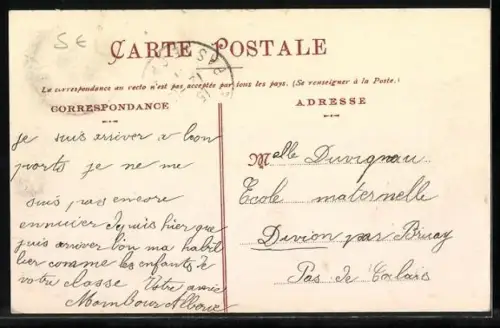 5 E
CARTE POSTALE
La correspondance au recto n'est pas acceptée par tous les pays. (Se renseigner à la Poste.)
CORRESPONDANCE
je suis arriver a bon
ports je ne me
suis pas encore
ennuier depuis hier que
juis arriver l'on ma habil
lier comme les enfants de
votre classe Votre amie
ADRESSE
Melle Duvignau
Ecole maternelle
Divion par Bruay
Pas de Calais